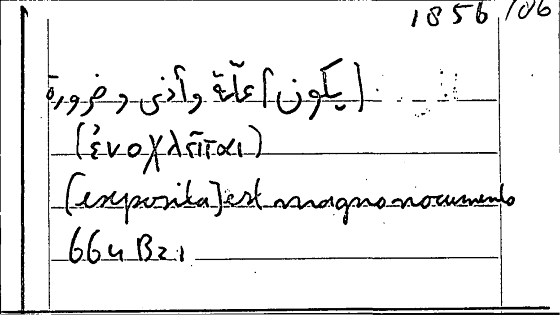 1856/06
[يكون] علّة وأذى وضرورة
(ἐνοχλεῖται)
[exposita] est magno nocumento
664 B21